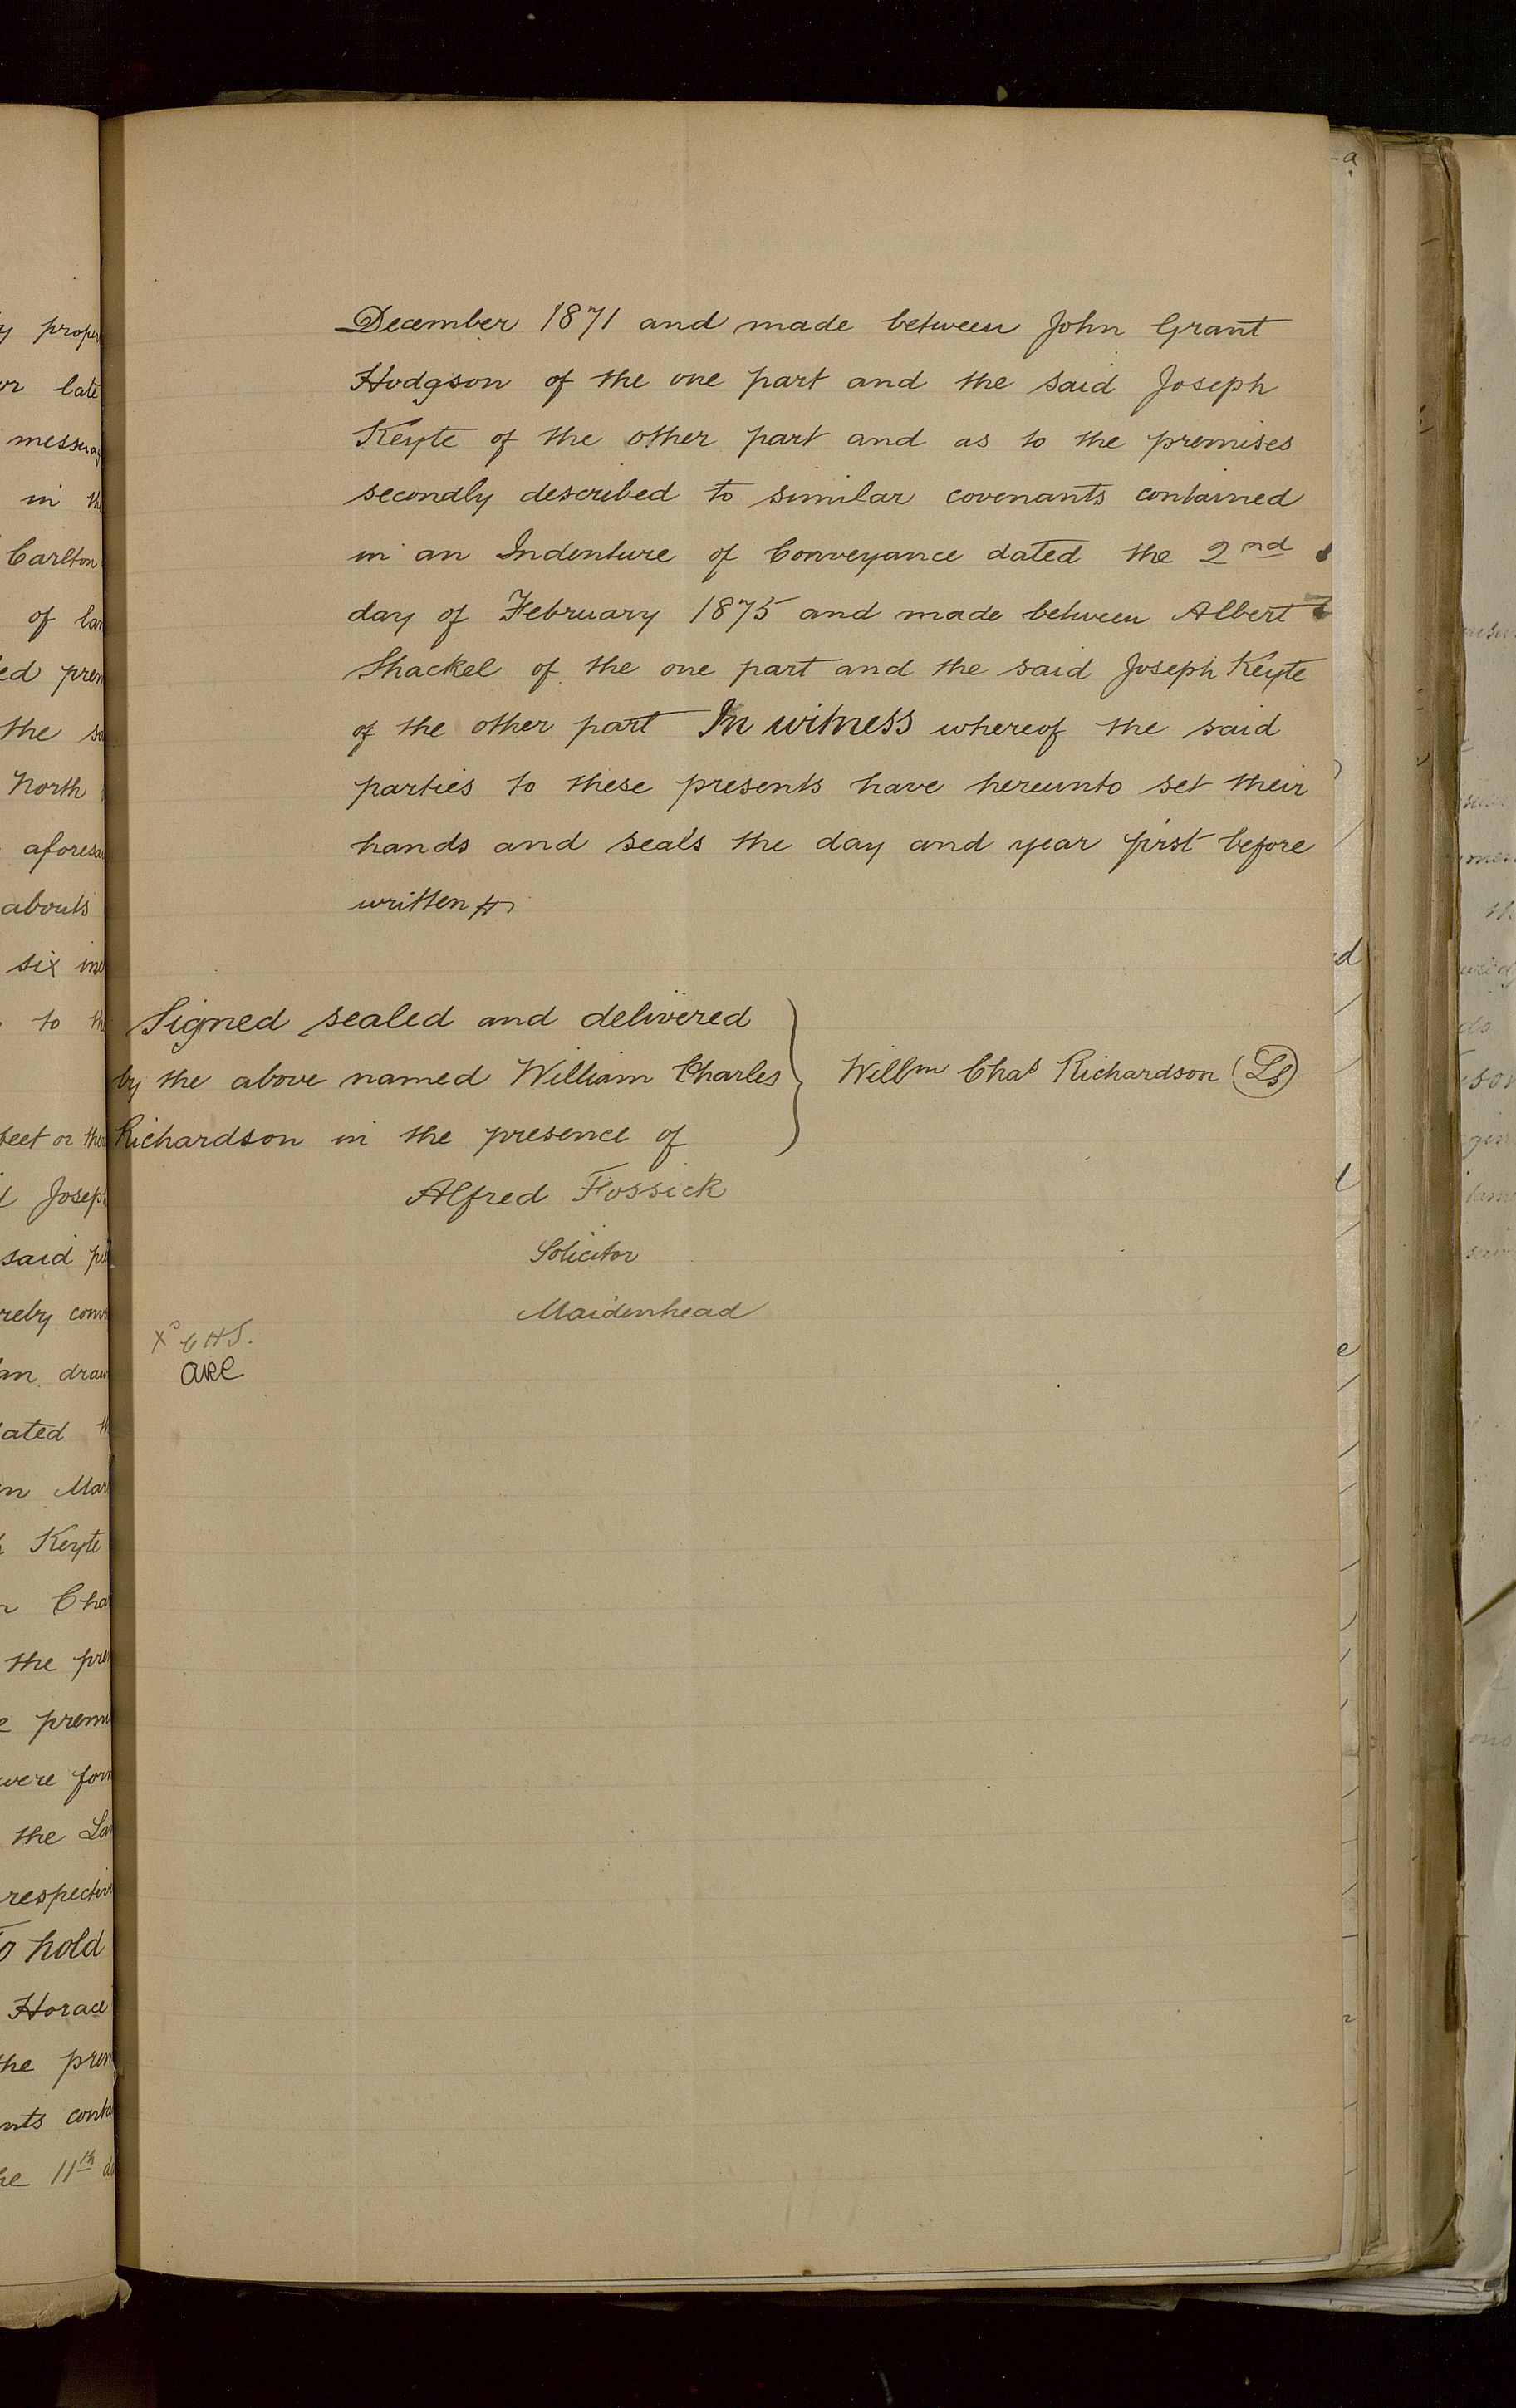 December 1871 and made between John Grant
Hodgson of the one part and the said Joseph
Keyte of the other part and as to the premises
secondly described to similar covenants contained
in an Indenture of Conveyance dated the 2nd
day of February 1875 and made between Albert
Shackel of the one part and the said Joseph Keyte
of the other part In witness whereof the said
parties to these presents have hereunto set their
hands and seals the day and year first before
written
Signed sealed and delivered
by the above named William Charles
Richardson in the presence of
Willm Chas Richardson (Ls)
Alfred Fossick
Solicitor
Maidenhead